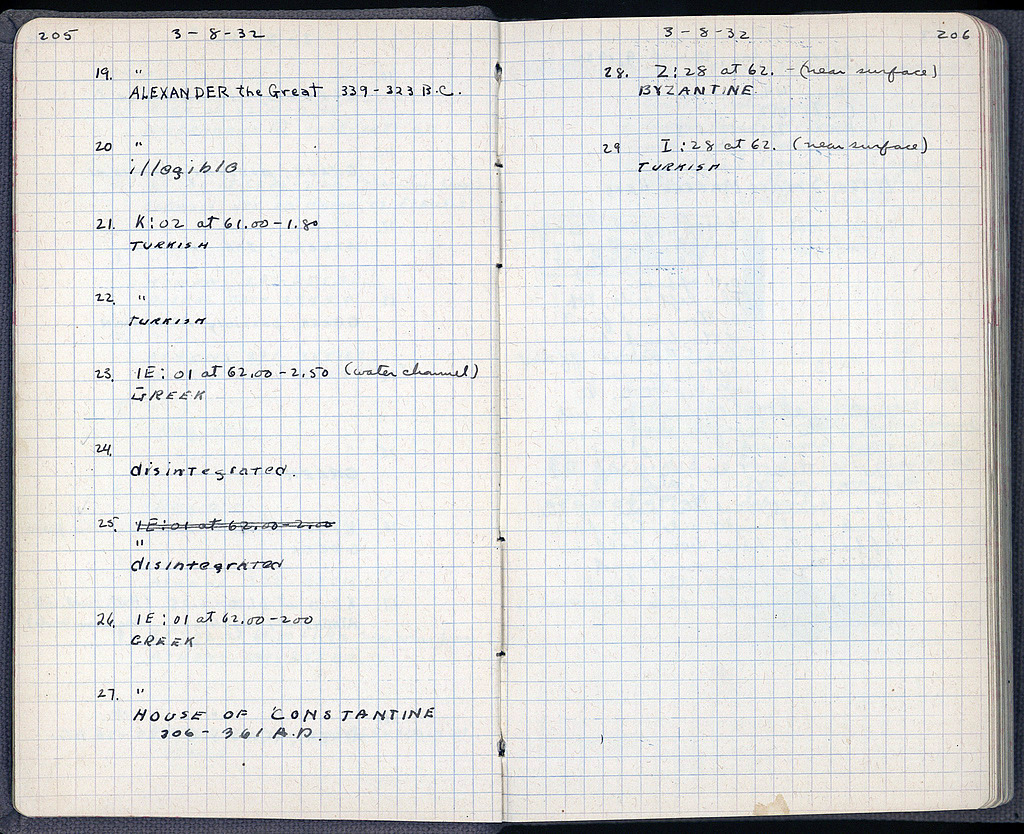 205
3-8-32
19. "
ALEXANDER the Great 339-323 B.C.
20 "
illegible
21. K:02 at 61.00-1.80
TURKISH
22. "
TURKISH
23. IE:01 at 62.00-2.50 (water channel)
GREEK
24.
disintegrated.
25. IE:01 at 62.00-2.00
"
disintegrated
26. IE:01 at 62.00-200
GREEK
27. "
HOUSE OF CONSTANTINE
306-361 A.D.
3-8-32
206
28. Z:28 at 62. - (near surface)
BYZANTINE.
29 I:28 at 62. (near surface)
TURKISH